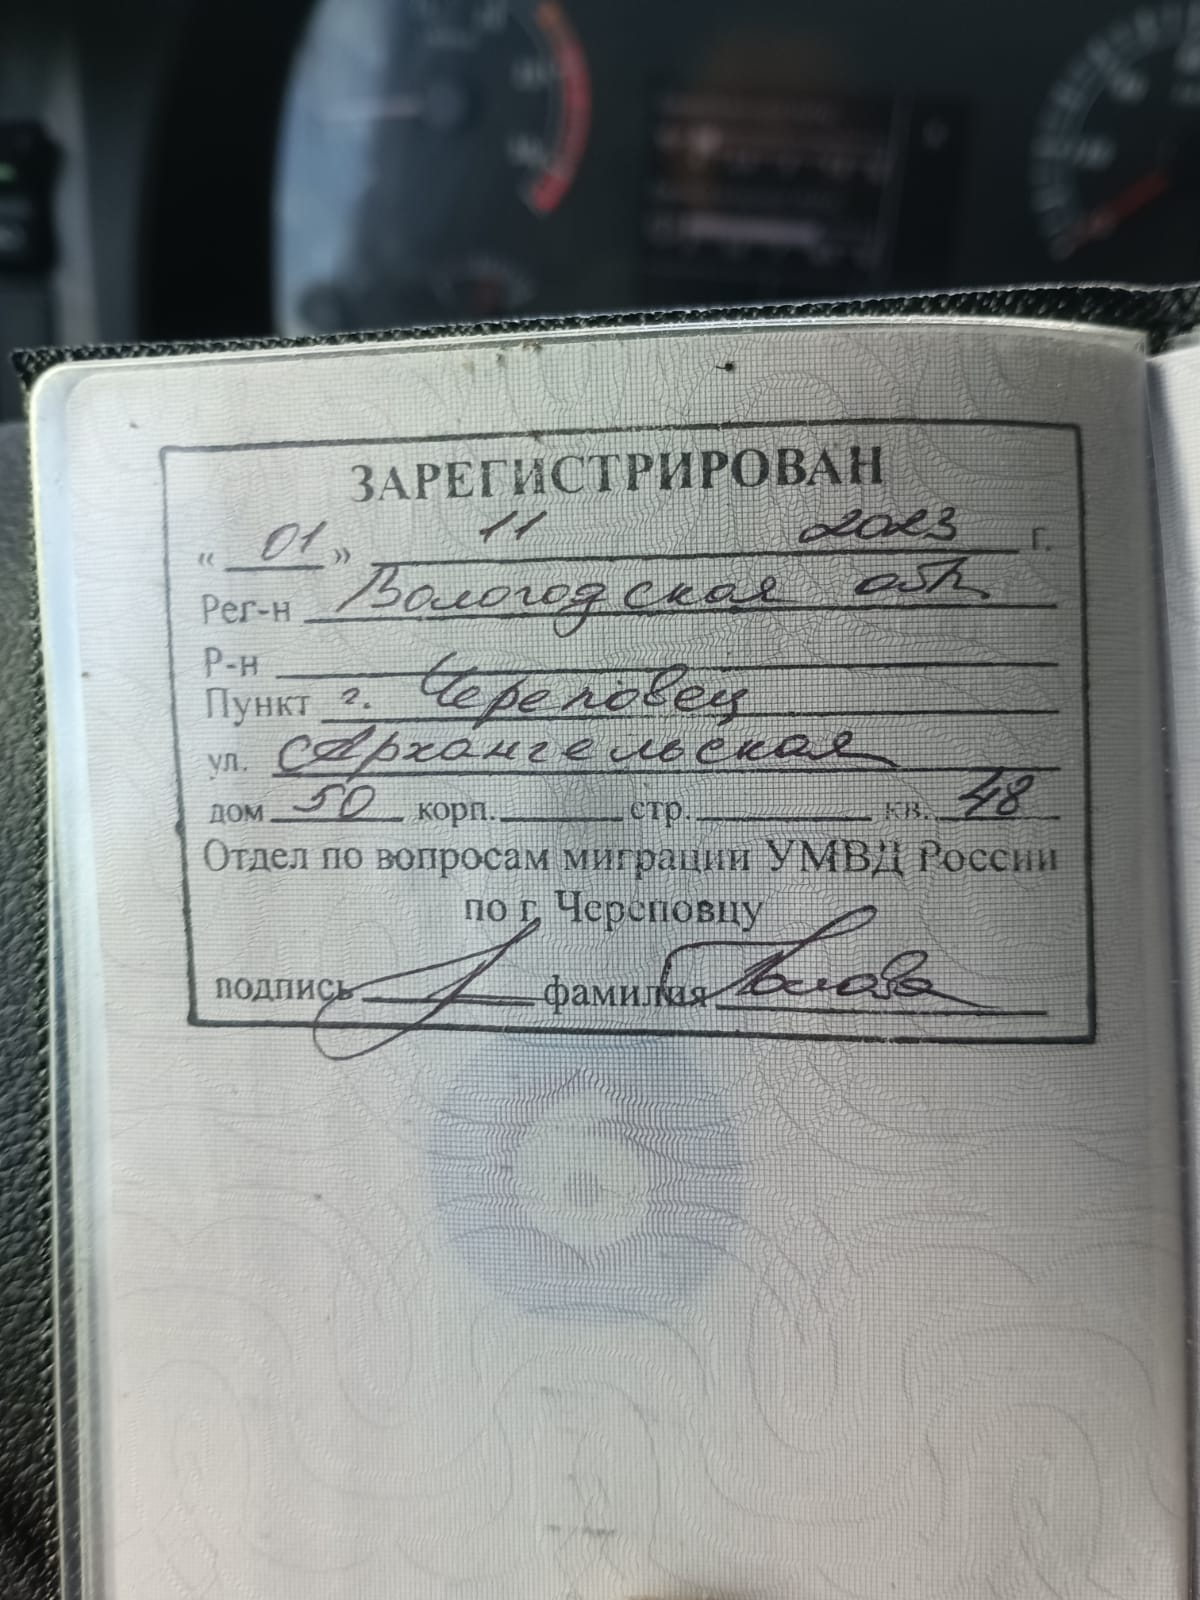 ЗАРЕГИСТРИРОВАН
« 01 » 11 2023 г.
Рег-н Вологодская обл
Р-н
Пункт г. Череповец
ул. Архангельская
дом 50 корп. стр. кв. 48
Отдел по вопросам миграции УМВД России
по г. Череповцу
подпись фамилия